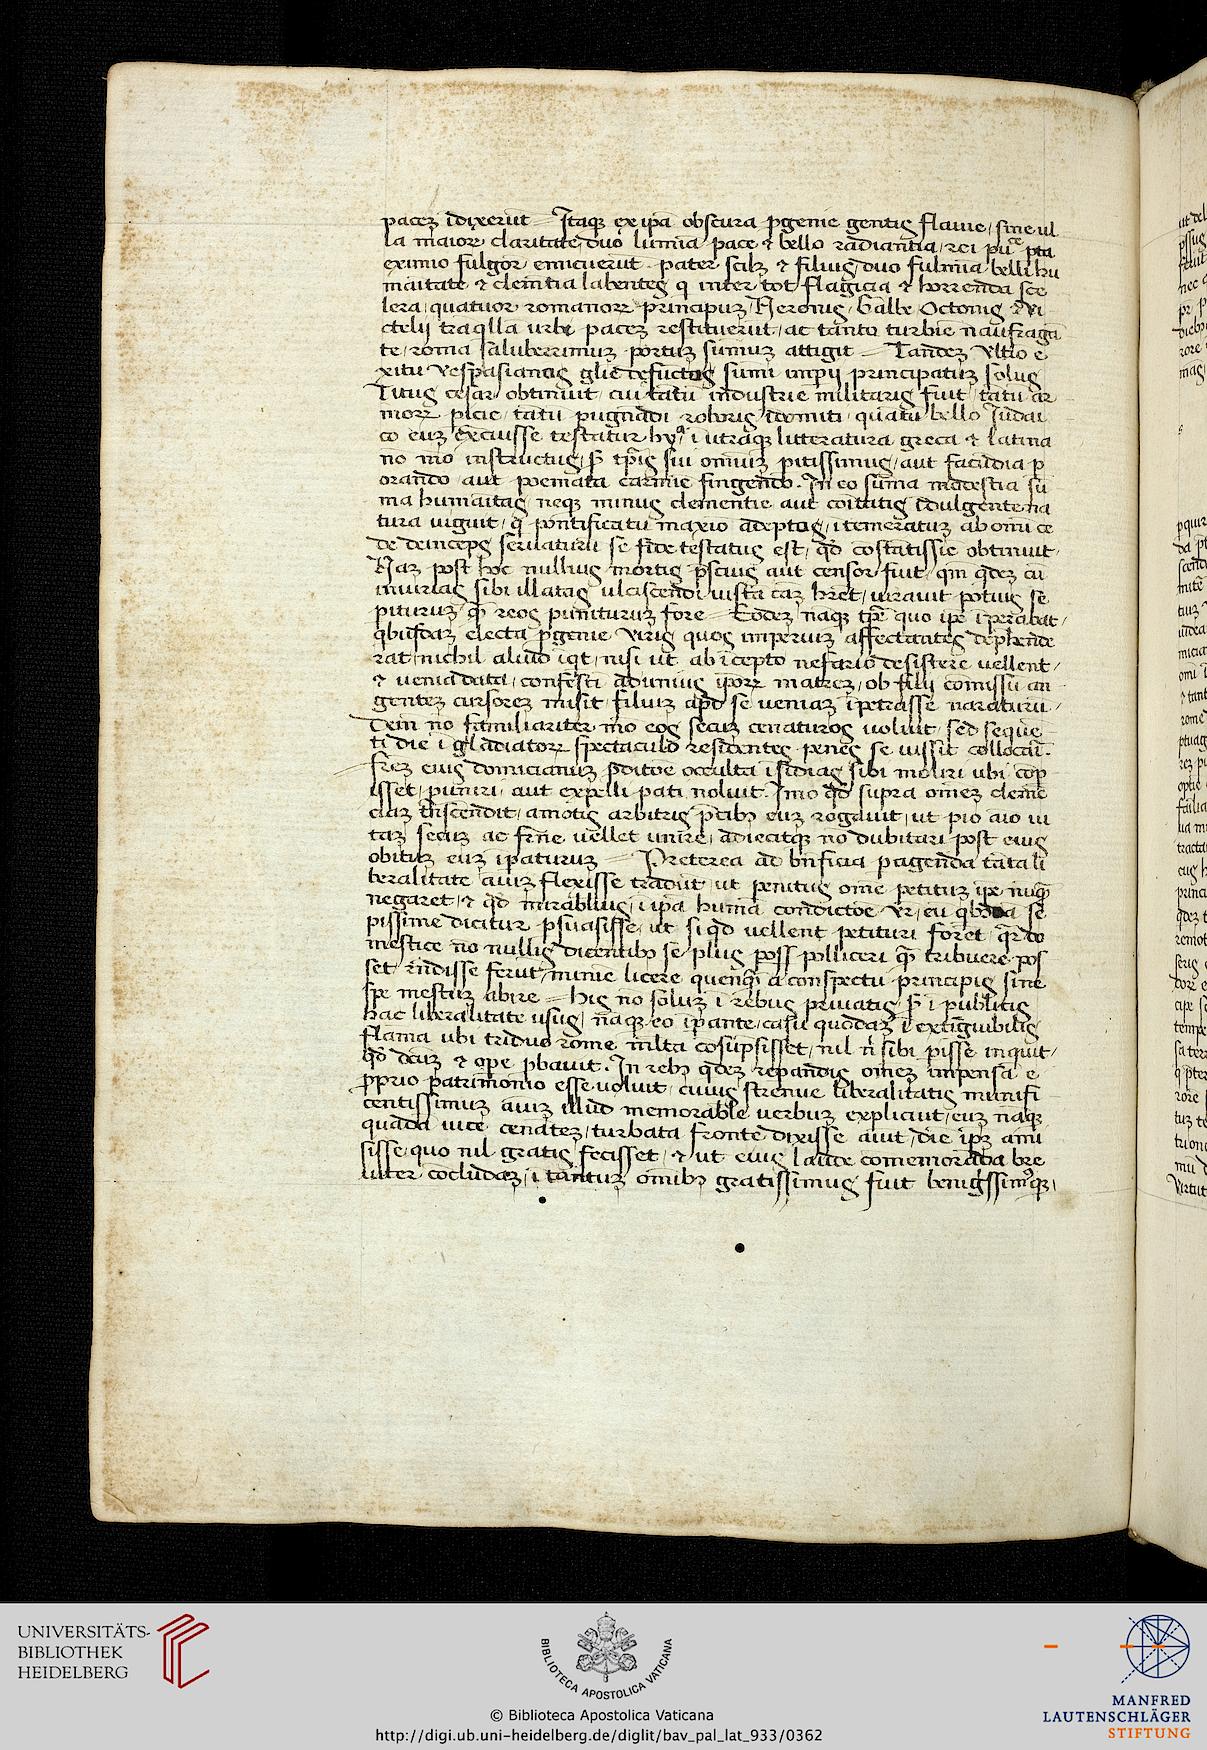 pacez idixerūt Itaqz ex ipā obscura ꝓgenie gentis flauie / sine ul
la maiorꝝ claritate duo lumīa pace ⁊ bello radiantia / rei pu͞ce
eximio fulgor emicuerūt pater scilz ⁊ filius duo fulmīa belli hu
māitate ⁊ clemītia labentes q inter tot flagicia ⁊ horrenda sce
lera quatuor romanorꝝ principuz / Neronis / Galbe Octonis ⁊ vi
ctelij traq̄lla urbi pacez restituerūt / ac tanto turbine naufragā
te / roma saluberrimuz portuz sumuz attigit Tandez vltio e
xitu vespasianus glīe sumi imp̄ij principatuz solus
Titus cesar obtinuit cui tātū industrie militaris fuit / tātū ar
morꝝ picie / tātū pugnādi roboris īdomiti / quātū bello Iudai
co euz testatur i utraqz litteratura greca ⁊ latina
nō mō instructus / sui omīuz pitissimus / aut facūdia ꝑ
orando aut poemata carmīe fingendo . In eo sūma modestia sū
ma humāitas / neqz minus clementie aut coītatis īdulgente na
tura uiguit / q pōntificatū maxīo adeptus / itemeratuz ab omī ce
de deinceps seruaturū se fide testatus est / qd cōstātissīe obtinuit .
Naz post hoc nullius mortis ꝓscius aut censor fuit / qm̄ qdez cū
iniurias sibi illatas ulciscendi iustā cāz hret / iurauit potius se
pituruz q̄ reos punituruz fore Eodez naqz tꝑe quo ipē īperabat /
qbusdaz electa ꝓgenie viris quos imperiuz affectantes dephende
rat / nichil aliud īqt / nisi ut ab īcepto nefario desistere vellent /
⁊ uenia data / confestī ad unius ipōrꝝ matrez / ob filij cōmissū an
gentez cursorez misit filiuz apd se ueniaz īpetrasse naraturū .
Dein nō familiariter mō eos secuz cenaturos uoluit / sed seque
ti die ī gladiatorꝝ spectaculo residentes penes se iussit collocari .
frez eius domicianuz ꝓditōe occulta īsidias sibi moliri ubi cōp
isset / puniri / aut expelli pati noluit . Imo qd supra omez clemē
ciaz trāscendit / amotis arbitris p̄cibꝫ euz rogauit / ut pio aīo ui
taz secuz ac frn̄e uellet unire / adiecitqz nō dubitari post eius
obituz euz īpaturuz Preterea ad bn̄ficia pagenda tāta li
beralitate aīuz flexisse tradūt / ut penitus omē petituz ipē nuq̄
negaret / ⁊ qd mirabilius / ī ipa humā condictōe vr̄ / eu qbꝫda se
pissime dicitur ꝑsuasisse / ut si qd uellent petituri forēt / qr do
mestice nō nullis dicentibꝫ se plus poss polliceri q̄ tribuere pos
set / rn̄disse ferūt / minīe licere quenq̄ a conspectu principis sine
spe mestuz abire his nō soluz ī rebus priuatis / s ī publicis
hac liberalitate usus / naqz eo īpante / casu quodaz ī extīguibilis
flama ubi triduo rome mlta cōsūpsisset / nil n̄ sibi pisse inquit /
qd dcūz ⁊ ope ꝓbauit . In rebꝫ qdez repandis omez impensā e
ꝓprio patrimonio esse uoluit / cuius strenue liberalitatis munifi
centissimuz aīuz illud memorable uerbuz explicuit / euz naqz
quadā uice cenatez / turbata fronte dixisse aiūt / die ipz ami
sisse / quo nil gratis fecisset / ⁊ ut eius laude cōmemorāda bre
uiter cōcludaz / ī tantuz omībꝫ gratissimus fuit benigssimꝰqz /
UNIVERSITÄTS-
BIBLIOTHEK
HEIDELBERG
BIBLIOTECA APOSTOLICA VATICANA
© Biblioteca Apostolica Vaticana
http://digi.ub.uni-heidelberg.de/diglit/bav_pal_lat_933/0362
MANFRED
LAUTENSCHLÄGER
STIFTUNG